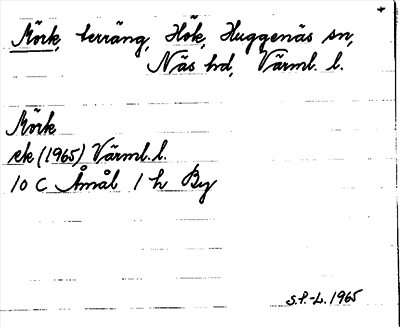 Mörk, terräng, Hök, Huggenäs sn,
Näs hd, Värml. l.
Mörk
ek (1965) Värml. l.
10 C Åmål 1 h By
S.P.-L. 1965